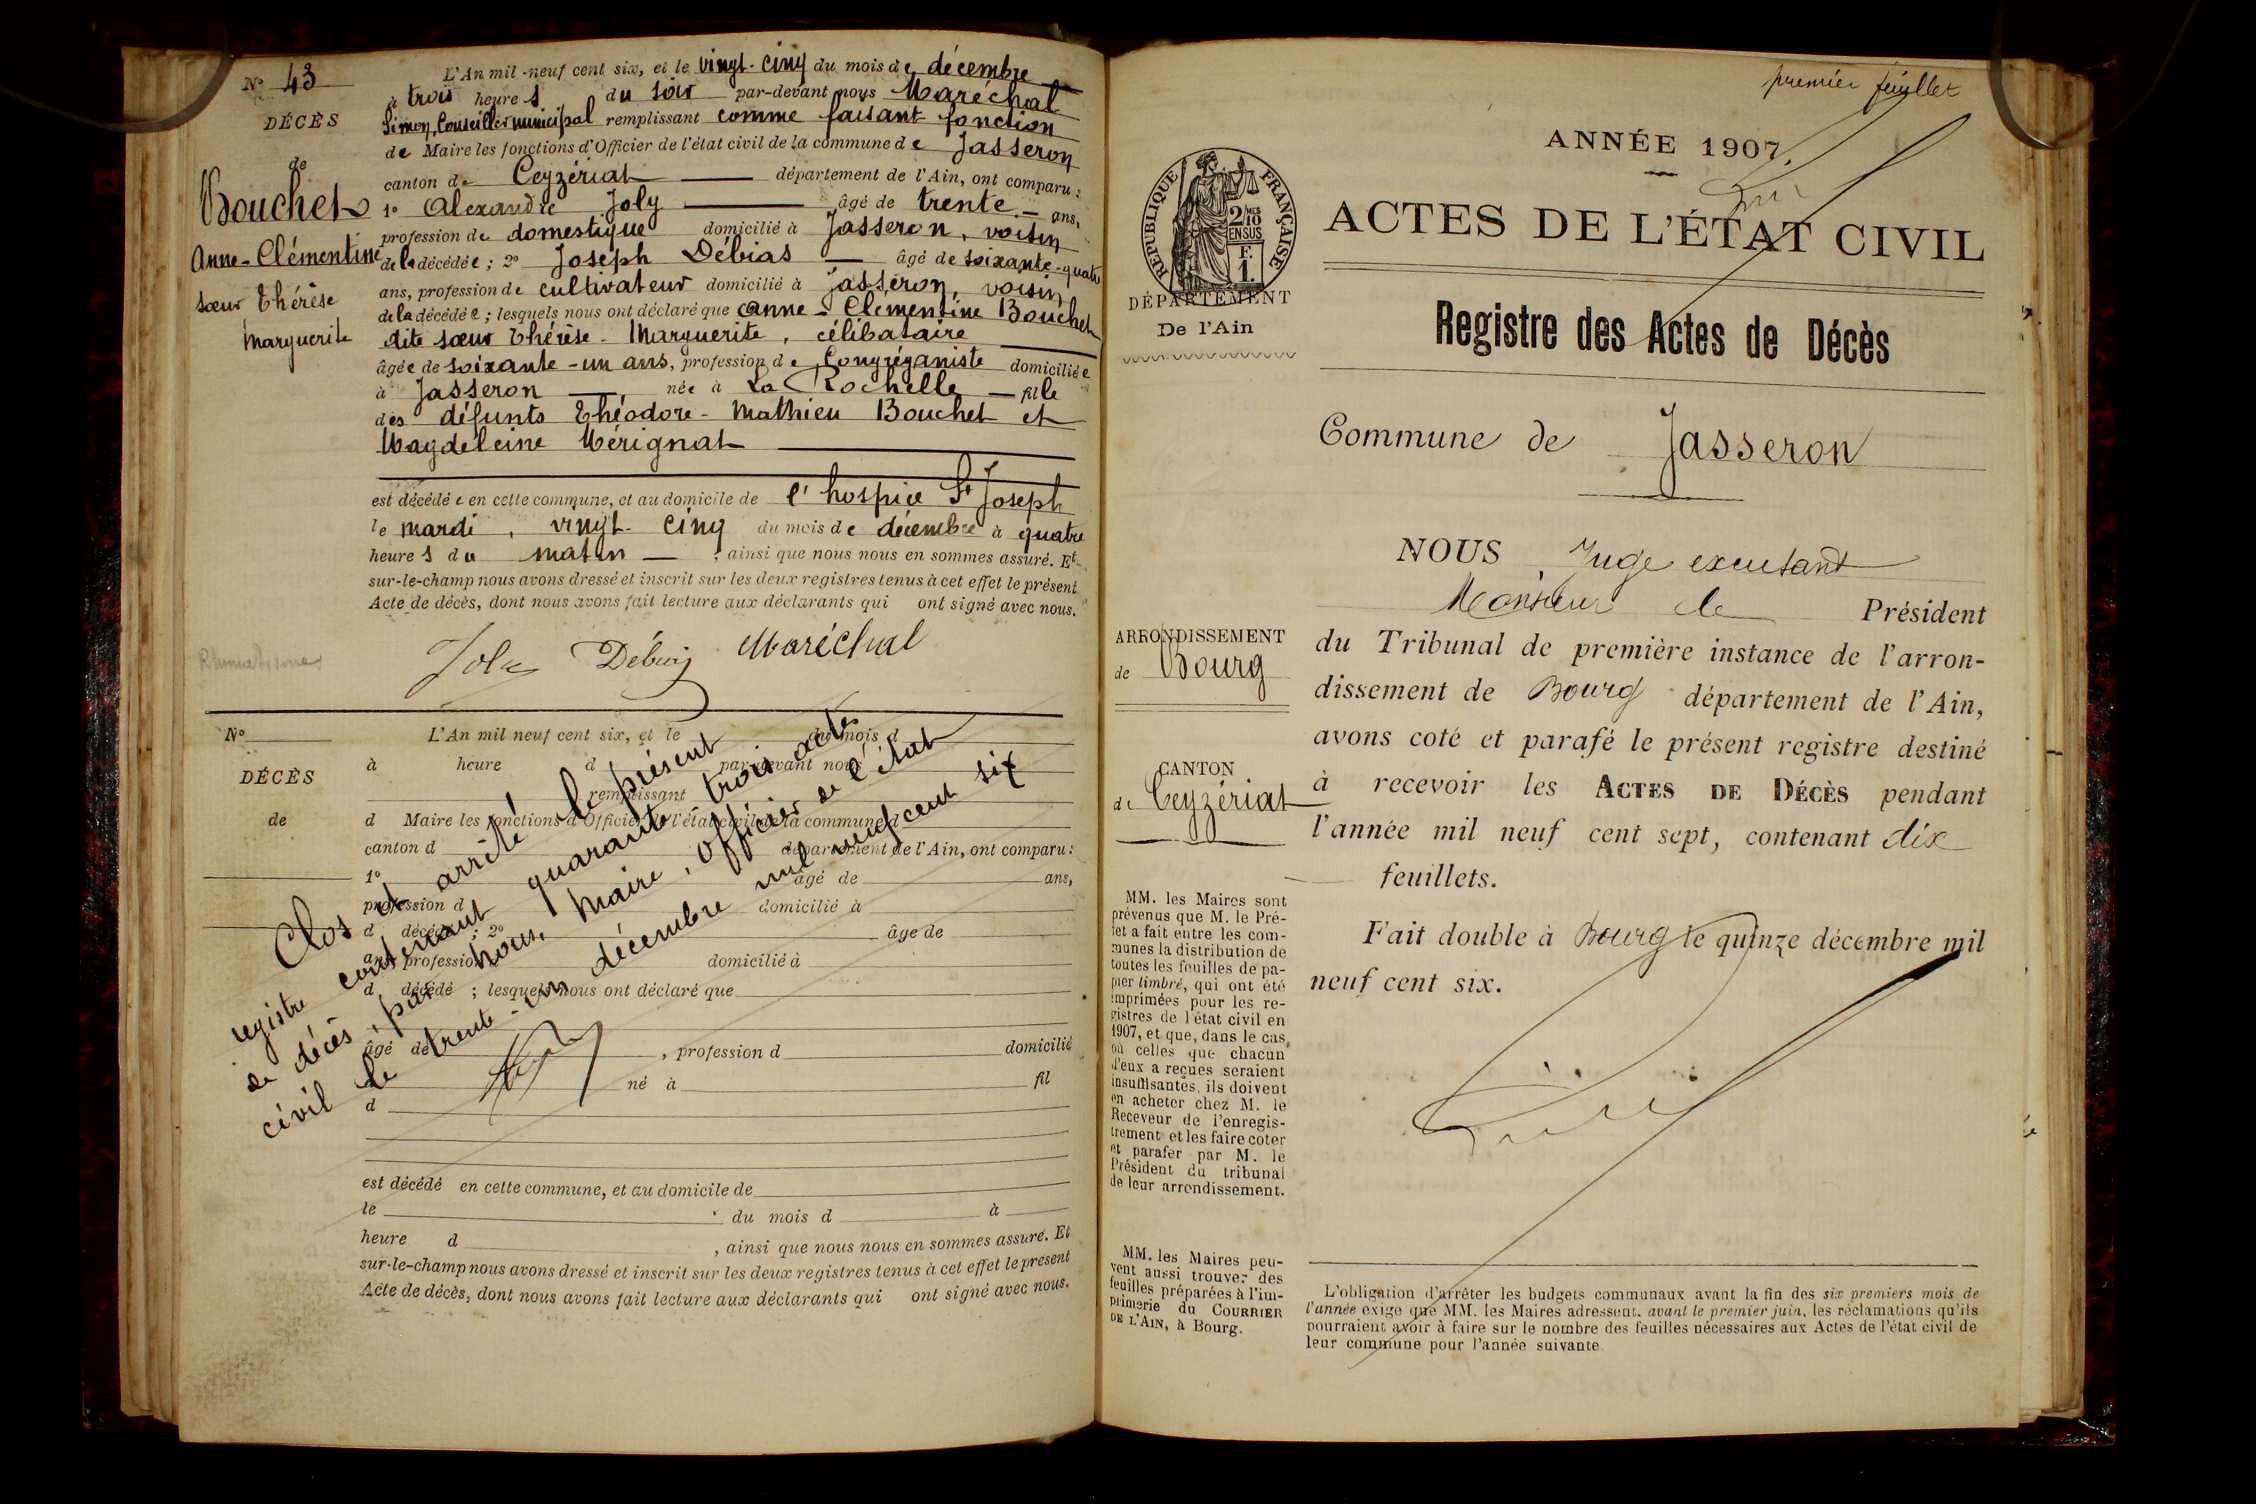 N° 43
DÉCÈS
de
Bouchet
Anne-Clémentine
sœur Thérèse
Marguerite
L'An mil-neuf cent six, et le vingt-cinq du mois de décembre
à trois heures du soir par-devant nous Maréchal
Simon, Conseiller municipal remplissant comme faisant fonction
de Maire les fonctions d'Officier de l'état civil de la commune de Jasseron
canton de Ceyzériat département de l'Ain, ont comparu :
1° Alexandre Joly âgé de trente ans,
profession de domestique domicilié à Jasseron, voisin
de la décédée ; 2° Joseph Débias âgé de soixante-quatre
ans, profession de cultivateur domicilié à Jasseron, voisin
de la décédée ; lesquels nous ont déclaré que Anne-Clémentine Bouchet
dite sœur Thérèse-Marguerite, célibataire
âgée de soixante-un ans, profession de Congréganiste domiciliée
à Jasseron née à La Rochelle fille
des défunts Théodore-Mathieu Bouchet et
Magdeleine Mérignat
est décédée en cette commune, et au domicile de l'hospice St Joseph
le mardi, vingt-cinq du mois de décembre à quatre
heures du matin, ainsi que nous nous en sommes assuré. Et
sur-le-champ nous avons dressé et inscrit sur les deux registres tenus à cet effet le présent
Acte de décès, dont nous avons fait lecture aux déclarants qui ont signé avec nous.
Rhumatismes
Joly Débias Maréchal
N°
DÉCÈS
de
L'An mil neuf cent six, et le du mois d
à heure d par-devant nous
remplissant
d Maire les fonctions d'Officier de l'état civil de la commune d
canton d département de l'Ain, ont comparu :
1° âgé de ans,
profession d domicilié à
d décédé ; 2° âge de
ans, profession d domicilié à
d décédé ; lesquels nous ont déclaré que
âgé de , profession d domicilié
né à fil
d
est décédé en cette commune, et au domicile de
le du mois d à
heure d , ainsi que nous nous en sommes assuré. Et
sur-le-champ nous avons dressé et inscrit sur les deux registres tenus à cet effet le présent
Acte de décès, dont nous avons fait lecture aux déclarants qui ont signé avec nous.
Clos et arrêté le présent
registre contenant quarante trois actes
de décès, par nous, Maire, officier de l'état
civil le trente-un décembre mil neuf cent six
premier feuillet
ANNÉE 1907.
ACTES DE L'ÉTAT CIVIL
RÉPUBLIQUE FRANÇAISE
2/10 MES
EN SUS
F.
1.
DÉPARTEMENT
De l'Ain
Registre des Actes de Décès
Commune de Jasseron
NOUS Juge excusant
Monsieur le Président
du Tribunal de première instance de l'arron-
dissement de Bourg département de l'Ain,
avons coté et parafé le présent registre destiné
à recevoir les ACTES DE DÉCÈS pendant
l'année mil neuf cent sept, contenant dix
feuillets.
Fait double à Bourg le quinze décembre mil
neuf cent six.
ARRONDISSEMENT
de Bourg
CANTON
de Ceyzériat
MM. les Maires sont
prévenus que M. le Pré-
fet a fait entre les com-
munes la distribution de
toutes les feuilles de pa-
pier timbré, qui ont été
imprimées pour les re-
gistres de l'état civil en
1907, et que, dans le cas
où celles que chacun
d'eux a reçues seraient
insuffisantes, ils doivent
en acheter chez M. le
Receveur de l'enregis-
trement et les faire coter
et parafer par M. le
Président du tribunal
de leur arrondissement.
MM. les Maires peu-
vent aussi trouver des
feuilles préparées à l'im-
primerie du COURRIER
DE L'AIN, à Bourg.
L'obligation d'arrêter les budgets communaux avant la fin des six premiers mois de
l'année exige que MM. les Maires adressent, avant le premier juin, les réclamations qu'ils
pourraient avoir à faire sur le nombre des feuilles nécessaires aux Actes de l'état civil de
leur commune pour l'année suivante